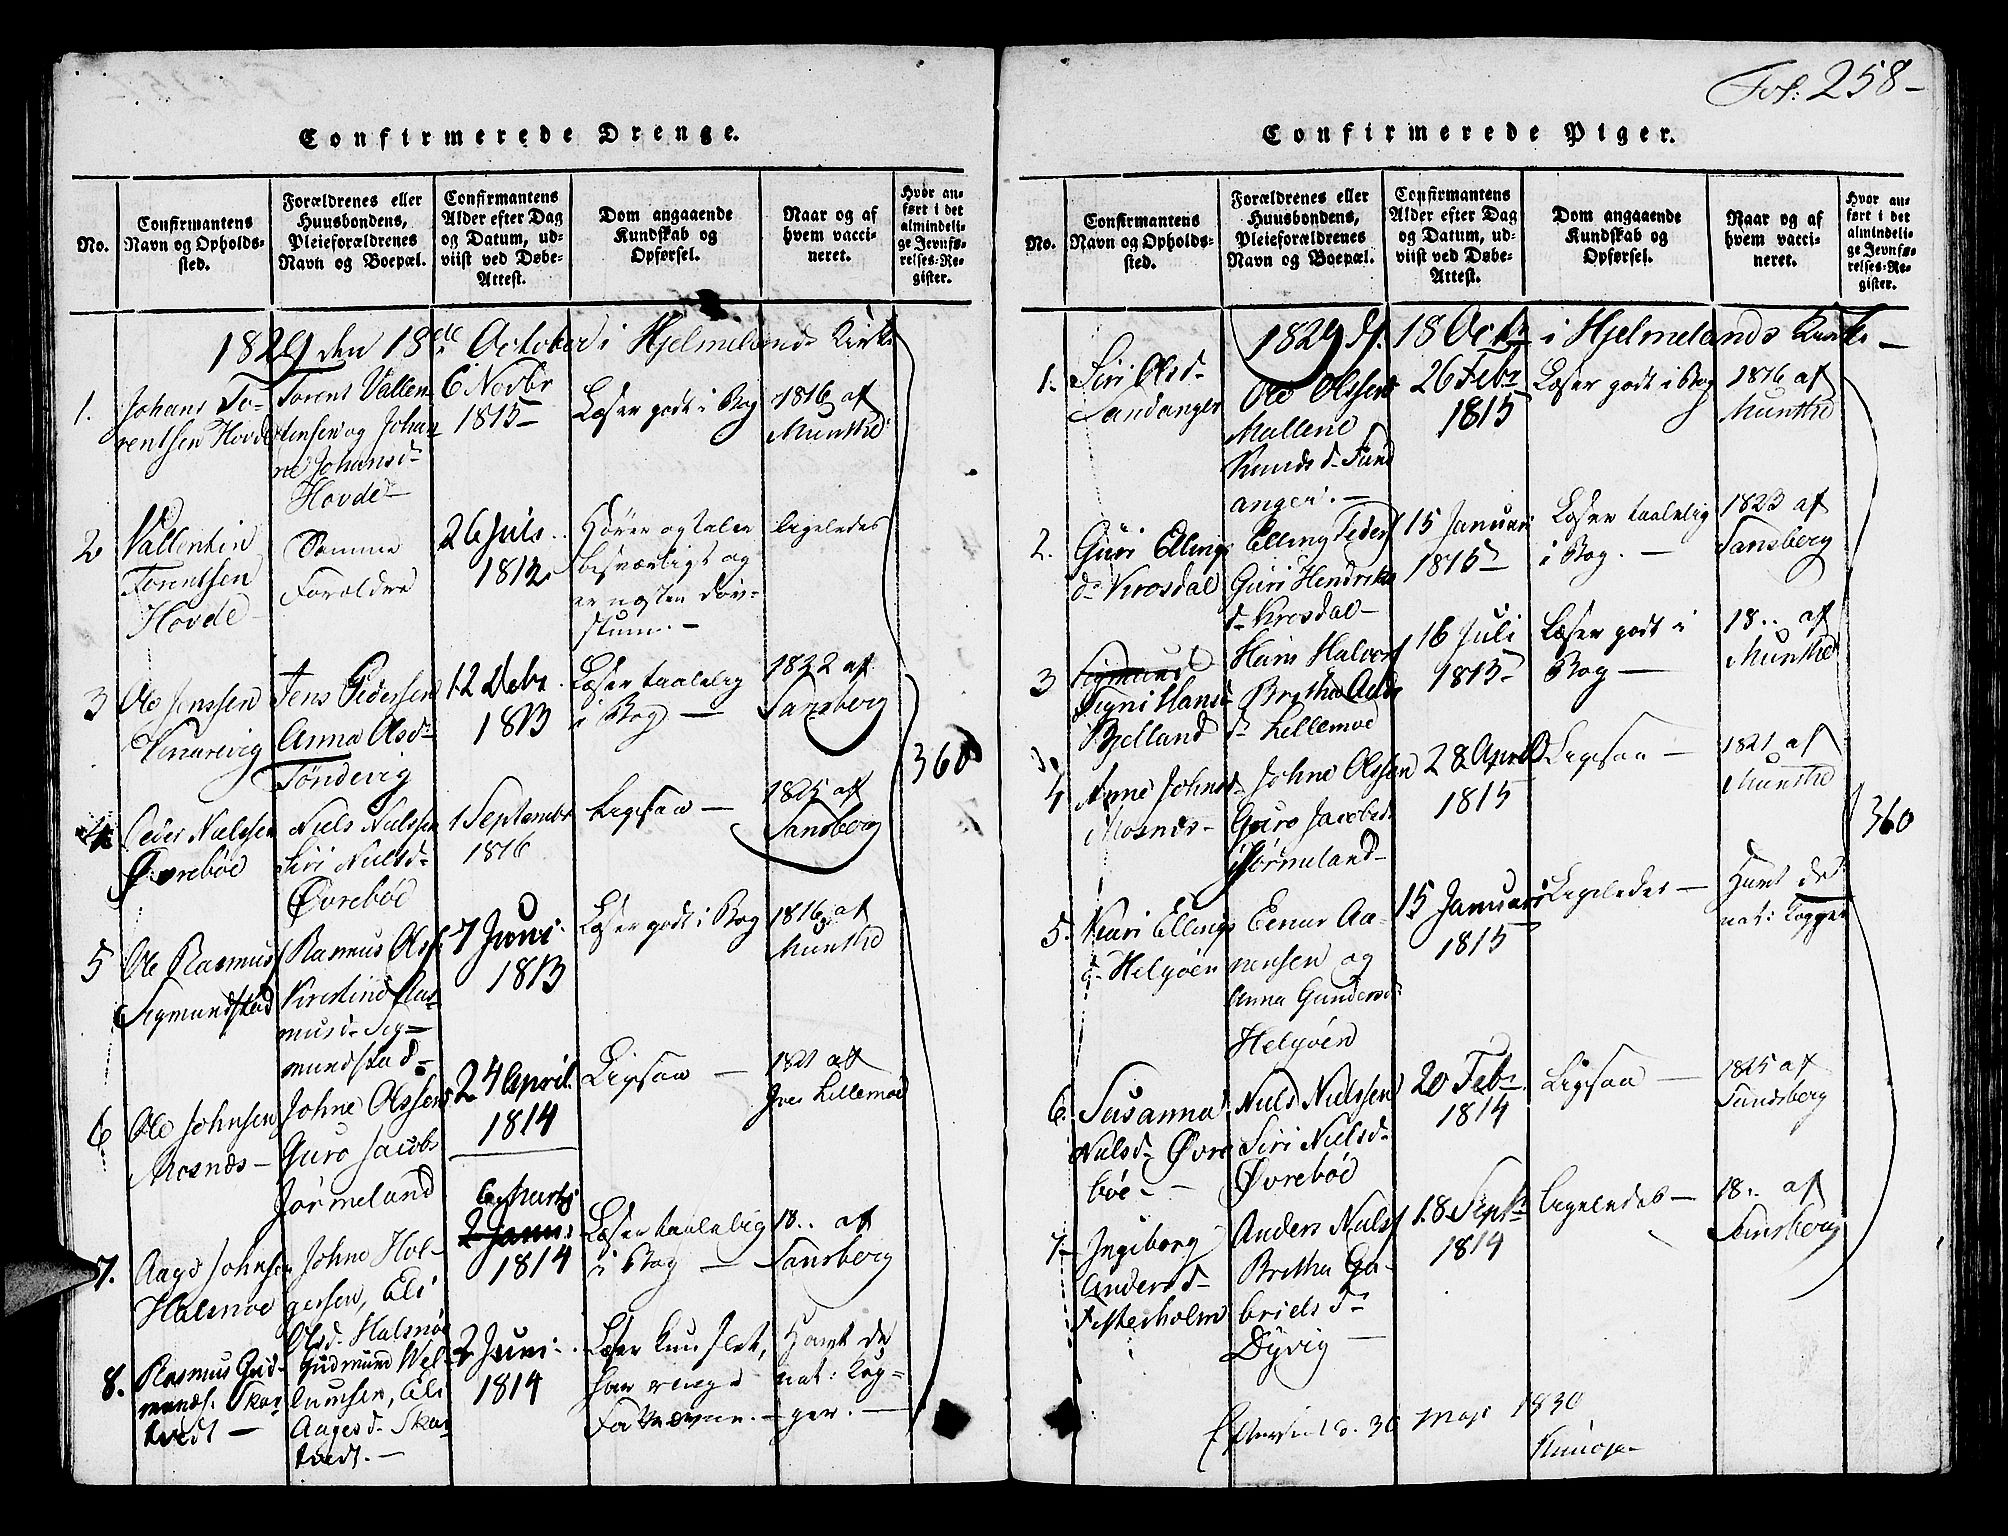 Fol: 258-
Confirmerede Drenge.
No.
Confirmantens
Navn og Opholds-
sted.
Forældrenes eller
Huusbondens,
Pleieforældrenes
Navn og Boepæl.
Confirmantens
Alder efter Dag
og Datum, ud-
viist ved Døbe-
Attest.
Dom angaaende
Kundskab og
Opførsel.
Naar og af
hvem vacci-
neret.
Hvor an-
ført i det
almindeli-
ge Jevnfø-
relses-Re-
gister.
1829 den 18de October i Hjelmelands Kirke
1.
Johans To-
rentsen Hovde
Torent Vallen
tinsen og Johan
ne Johansd-
Hovde-
6 Novbr
1815-
Læser godt i Bog
1816 af
Munthe
2
Vallentin
Torentsen
Hovde
Samme
Forældre
26 Juli
1812
Hører og taler
besværligt og
er næsten døv-
stum.-
ligeledes
3
Ole Jenssen
Knarevig
Jens Pedersen
Anna Olsd-
Tøndevig
12 Debr
1813
Læser taalelig
i Bog -
1822 af
Sansberg
4
Peder Nielssen
Øvrebøe
Niels Nielssen
Siri Nielsd-
Øvrebøe
1 Septembr
1816
Ligesaa -
1825 af
Sansberg
5
Ole Rasmuss
Sigmundstad
Rasmus Olss
Kirstine Ras-
musd- Sig-
mundstad-
7 Juni
1813
Læser godt i Bog
1816 af
Munthe
6
Ole Johnsen
Mosnæs-
Johne Olssen
Guro Jacobs
Jørmeland
24 April
1814
Ligesaa -
1821 af
Ives Lillemoe
7.
Aage Johnsen
Halsnøe
Johne Hol-
gersen, Eli
Olsd- Halsnøe
6 Marts
2 Janu:
1814
Læser taalelig
i Bog -
18.. af
Sansberg
8.
Rasmus Gud-
munds. Skar
tvedt -
Gudmund Wel-
lumsen, Eli
Aagesd- Skar
tvedt.-
2 Juni
1814
Læser kun slet,
har ringe
Fatteevne.-
Havt de
nat: Kop-
per. -
360
Confirmerede Piger.
No.
Confirmantens
Navn og Opholds-
sted.
Forældrenes eller
Huusbondens,
Pleieforældrenes
Navn og Boepæl.
Confirmantens
Alder efter Dag
og Datum, ud-
viist ved Døbe-
Attest.
Dom angaaende
Kundskab og
Opførsel.
Naar og af
hvem vacci-
neret.
Hvor an-
ført i det
almindeli-
ge Jevnfø-
relses-Re-
gister.
1829 d. 18 Octbr i Hjelmelands Kirke -
1.
Siri Olsd-
Sandanger
Ole Olssen
Mallene
Knudsd- Sand
anger.-
26 Febr
1815
Læser godt i Bog
1816 af
Munthe
2.
Guri Ellings
d- Krosdal
Elling Peders
Guri Hendriks
d- Krosdal-
15 Januar
1815
Læser taalelig
i Bog. -
1823 af
Sansberg
3
Sigmund
Signi Hansd-
Bjelland
Hans Halvors
Brytha
d- Lillemoe
16 Juli
1813
Læser godt i
Bog -
18.. af
Munthe
4
Anne Johnsd-
Mosnæs-
Johne Olssen
Guro Jacobsd-
Jørmeland-
28 April
1815
Ligesaa -
1821 af
Munthe
5.
Kari Ellings
d- Helgøen
Eenar Aa-
nensen og
Anna Gundersd-
Helgøen
15 Januar
1815
Ligeledes -
Havt de
nat: Kopper
6.
Susanna
Nielsd- Øvre
bøe-
Niels Nielssen
Siri Nielsd-
Øvrebøe
20 Febr
1814
Ligesaa -
1825 af
Sansberg
7-
Ingeborg
Andersd-
Vesterholm
Anders Niels
Bretha Ga-
briels D-
Dyvig -
18 Septbr
1814
Ligeledes -
18.. af
Sansberg
360
Efterseet d. 30 Mai 1830